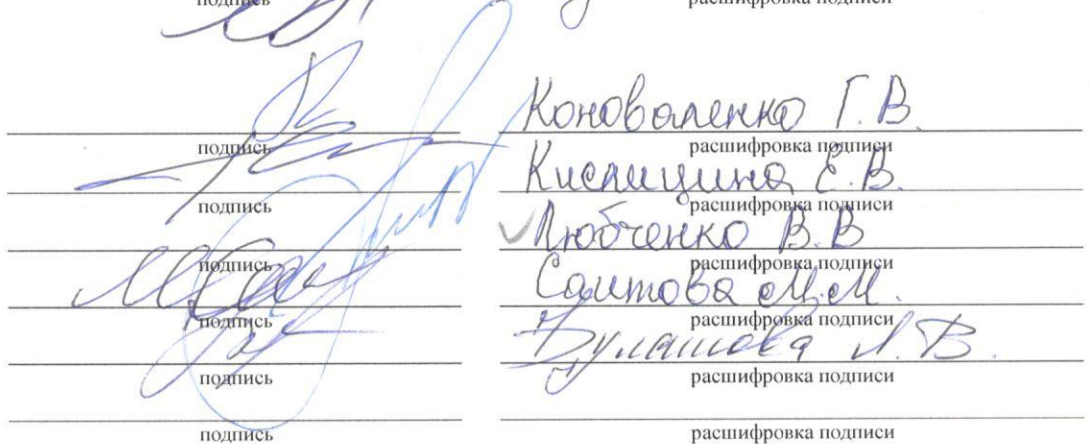 подпись расшифровка подписи
Коноваленко Г.В.
подпись расшифровка подписи
Кислицина Е.В.
подпись расшифровка подписи
Любченко В.В
подпись расшифровка подписи
Саитова М.М.
подпись расшифровка подписи
Булатова Л.В.
подпись расшифровка подписи
подпись расшифровка подписи